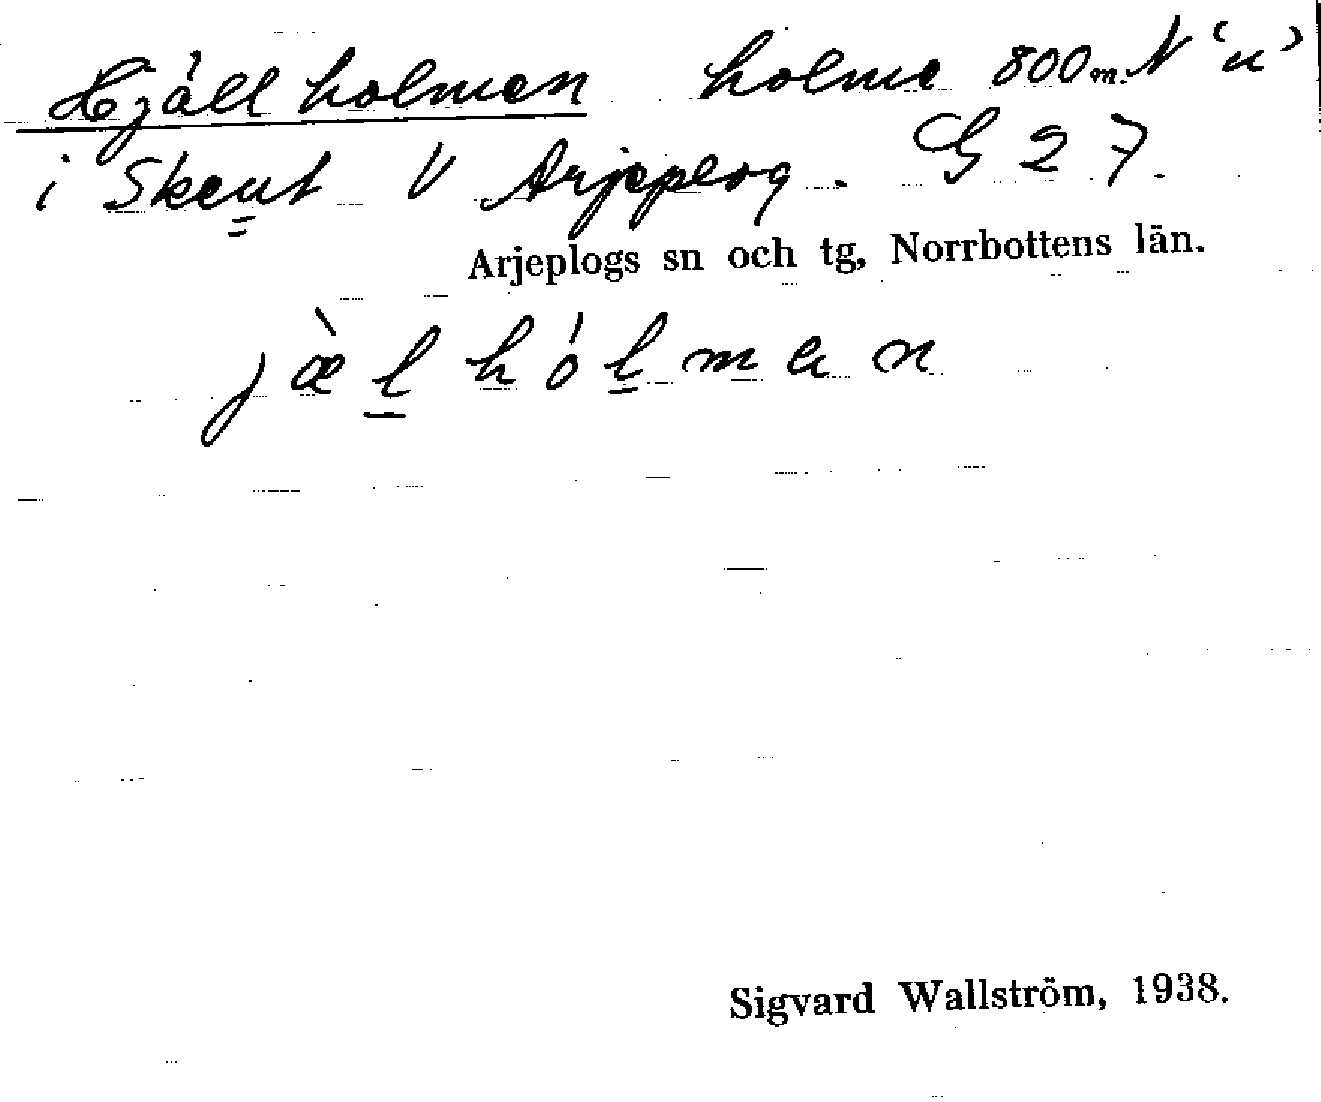 Hjällholmen holme 800 m N 'u'
i Skeut V Arjeplog. G 27.
Arjeplogs sn och tg, Norrbottens län.
jæ̀l hólman
Sigvard Wallström, 1938.